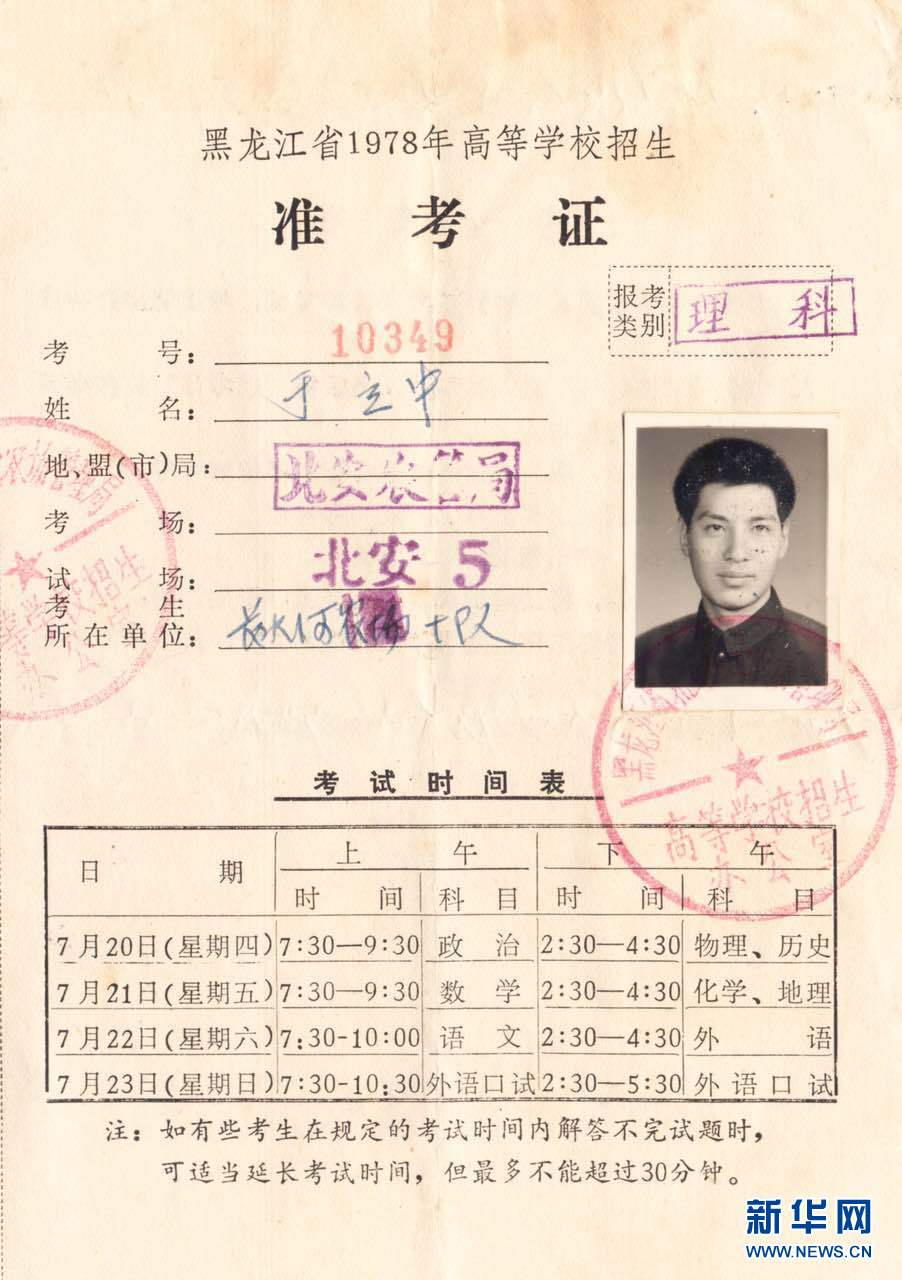 黑龙江省1978年高等学校招生
准考证
报考类别 理科
考号: 10349
姓名: 于立中
地、盟(市)局: 北安农管局
考场:
试场: 北安 5
考生所在单位: 长水河农场 十队
高等学校招生
办公室
黑龙江省
高等学校招生
办公室
考试时间表
日期 上午 下午
时间 科目 时间 科目
7月20日(星期四) 7:30—9:30 政治 2:30—4:30 物理、历史
7月21日(星期五) 7:30—9:30 数学 2:30—4:30 化学、地理
7月22日(星期六) 7:30-10:00 语文 2:30—4:30 外语
7月23日(星期日) 7:30-10:30 外语口试 2:30—5:30 外语口试
注: 如有些考生在规定的考试时间内解答不完试题时,
可适当延长考试时间, 但最多不能超过30分钟。
新华网
WWW.NEWS.CN